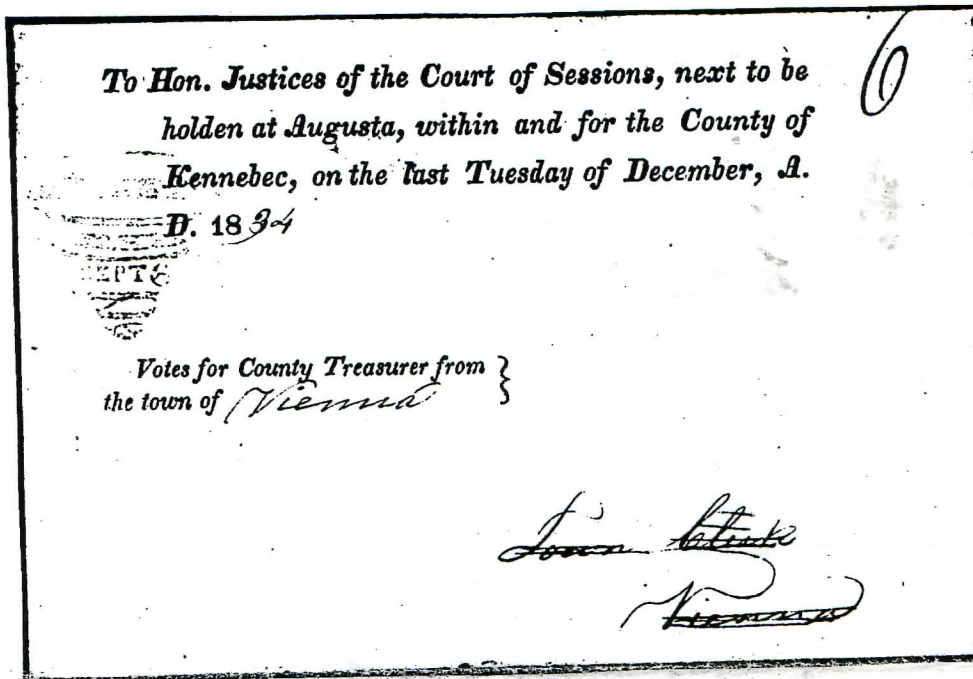 6
To Hon. Justices of the Court of Sessions, next to be
holden at Augusta, within and for the County of
Kennebec, on the last Tuesday of December, A.
D. 1834
Votes for County Treasurer from
the town of Vienna }
Town Clerk
Vienna